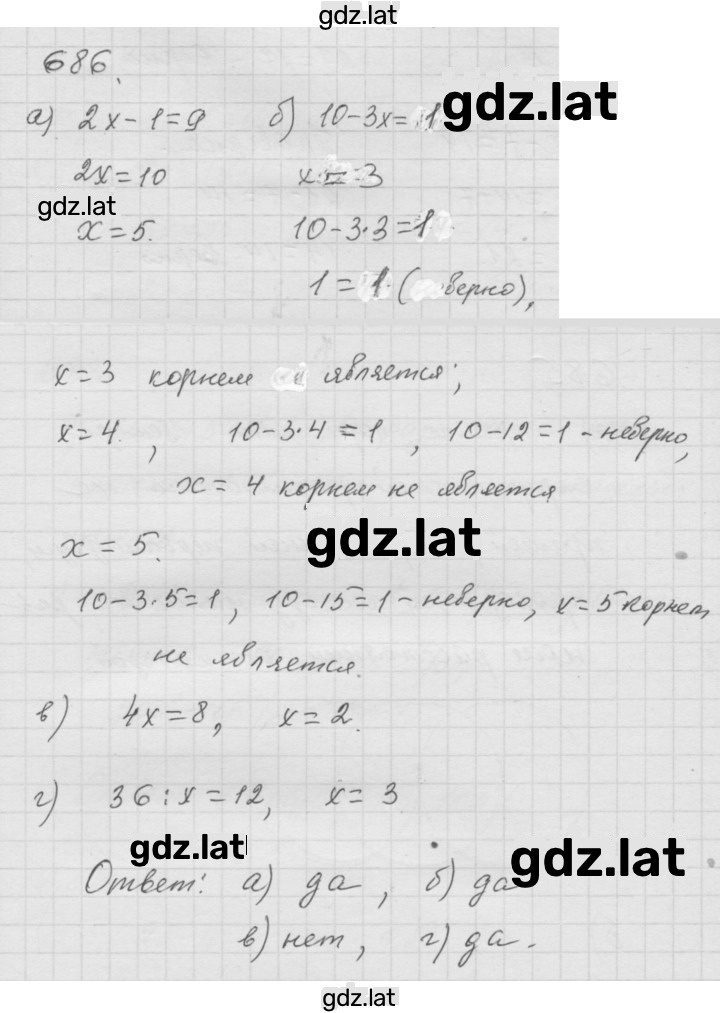 gdz.lat
686.
а) 2x - 1 = 9 б) 10 - 3x = 1 gdz.lat
2x = 10 x = 3
gdz.lat
x = 5. 10 - 3·3 = 1
1 = 1 (верно),
x = 3 корнем является;
x = 4, 10 - 3·4 = 1, 10 - 12 = 1 - неверно,
x = 4 корнем не является
x = 5. gdz.lat
10 - 3·5 = 1, 10 - 15 = 1 - неверно, x = 5 корнем
не является.
в) 4x = 8, x = 2.
г) 36 : x = 12, x = 3
gdz.lat gdz.lat
Ответ: а) да, б) да
в) нет, г) да.
gdz.lat